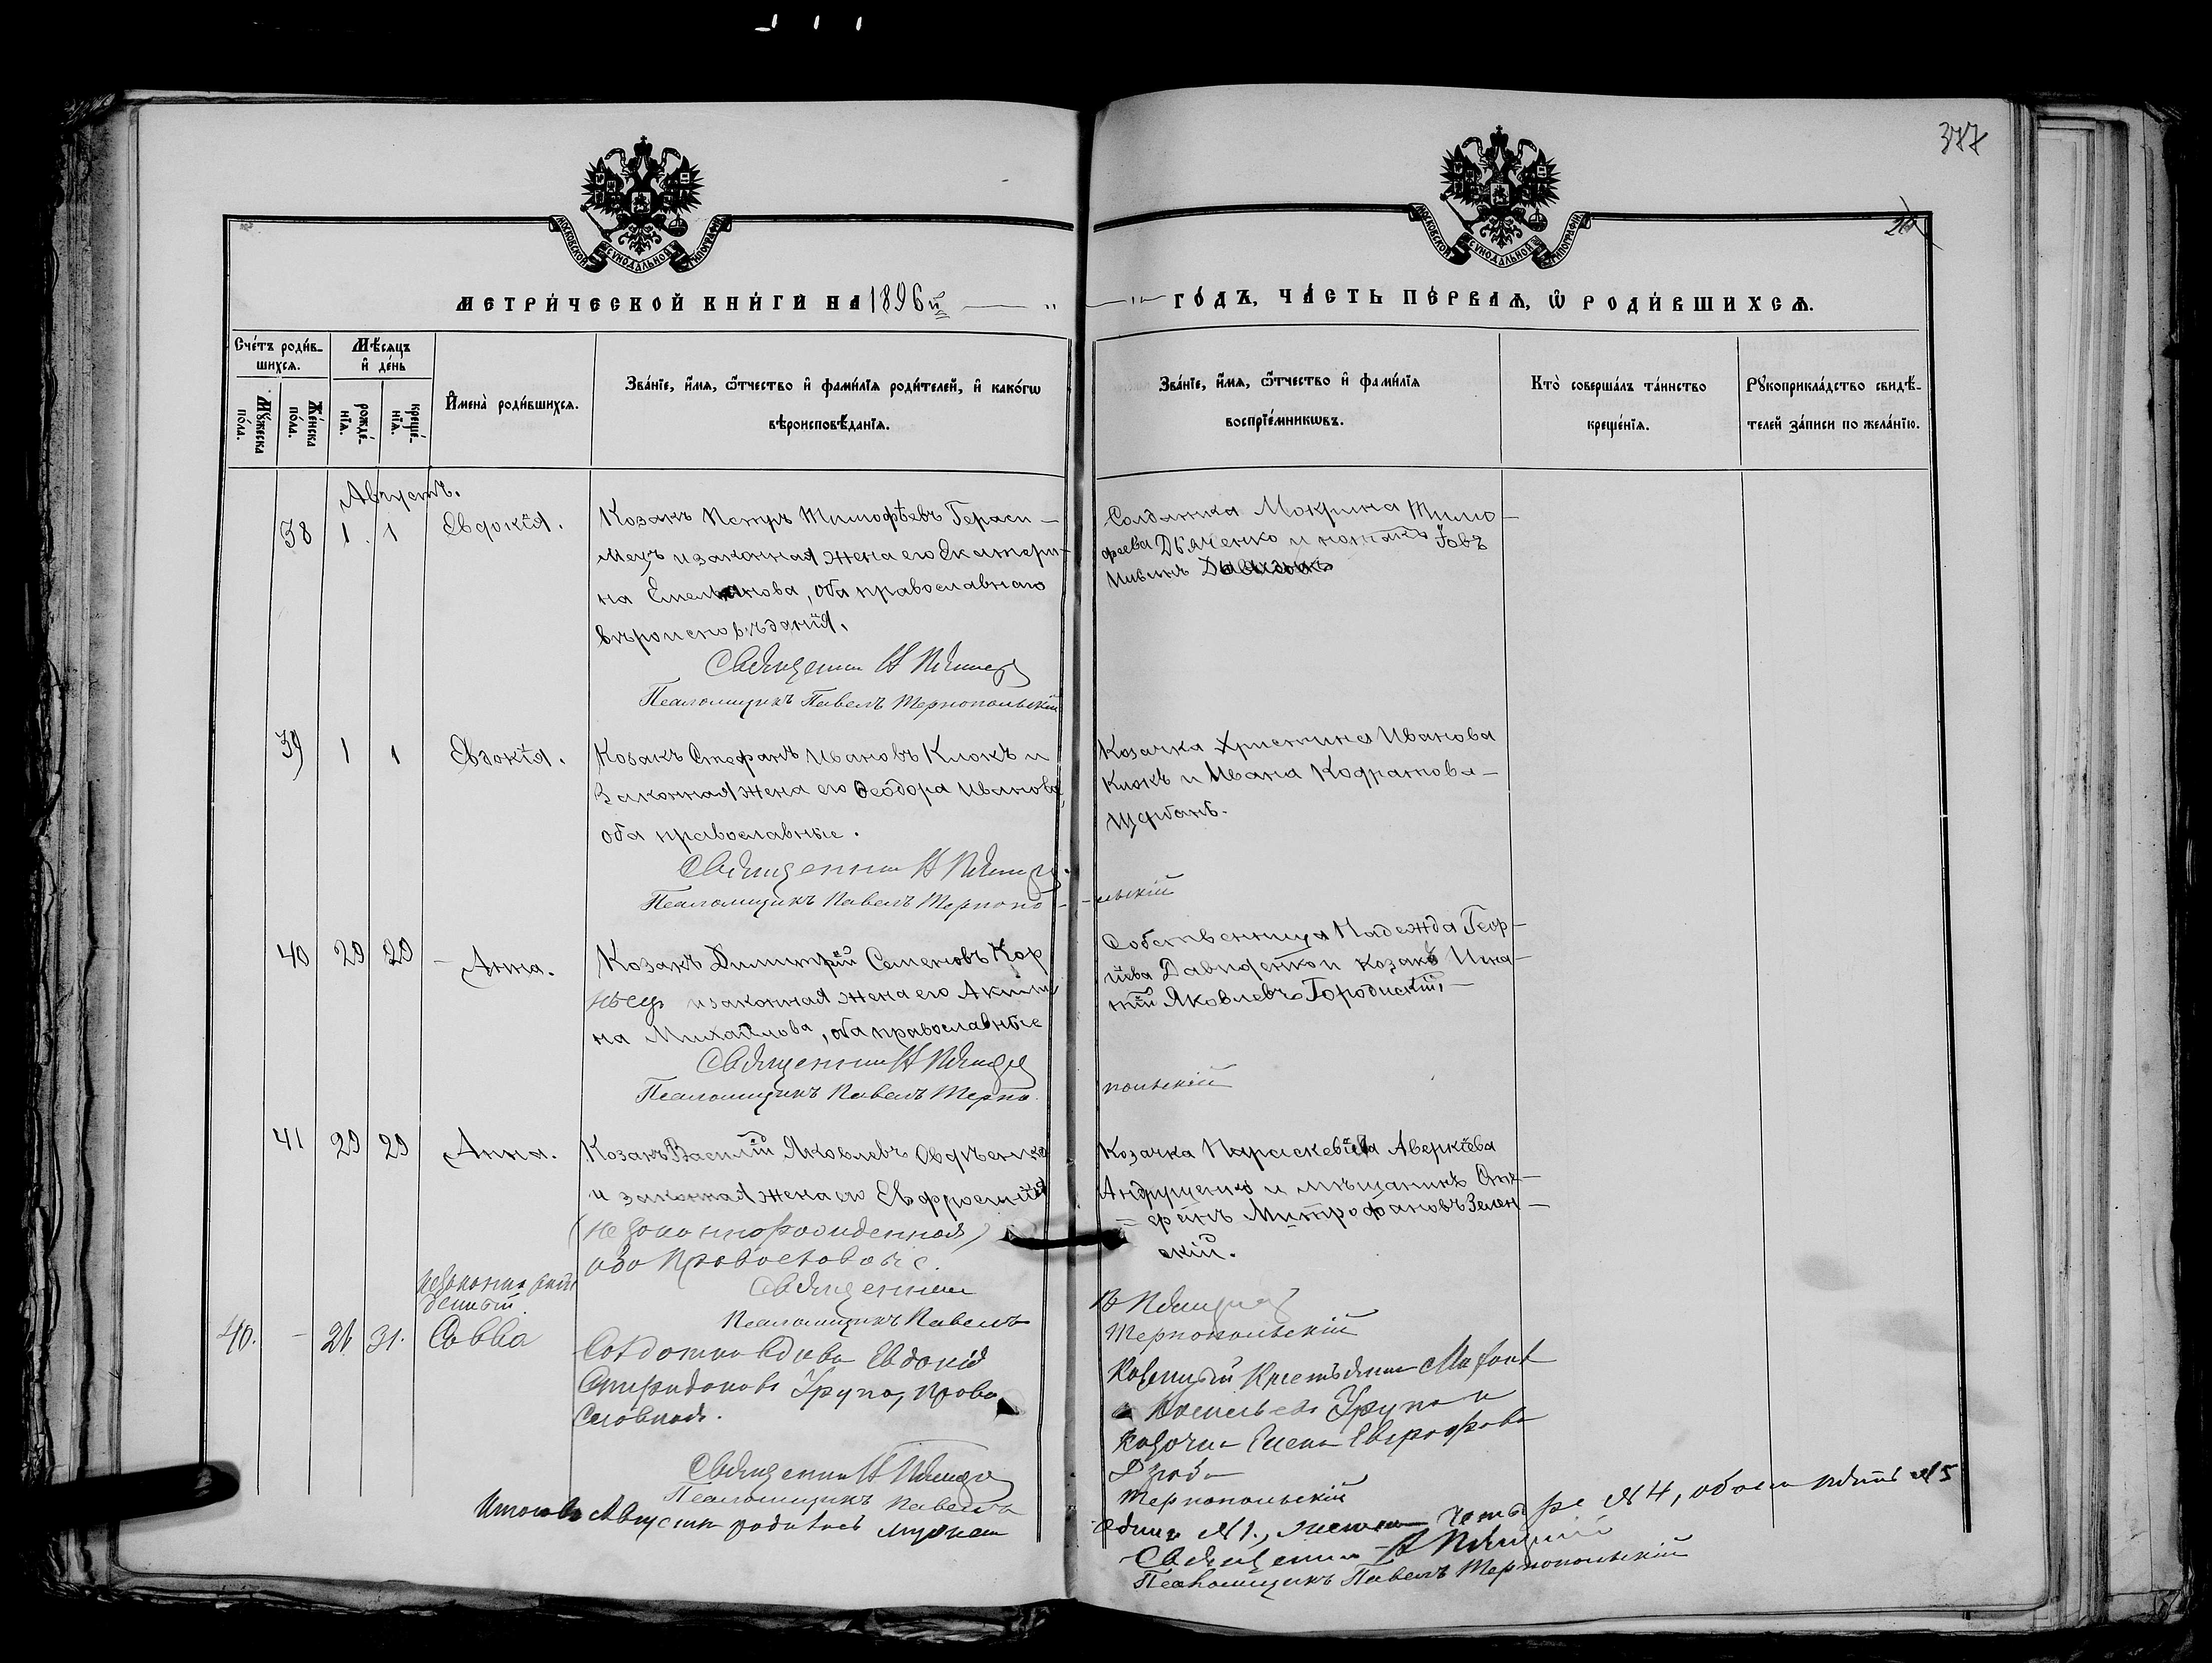 377
20
МОСКОВСКОЙ СѴНОДАЛЬНОЙ ТИПОГРАФІИ
МОСКОВСКОЙ СѴНОДАЛЬНОЙ ТИПОГРАФІИ
МЕТРИ́ЧЕСКОЙ КНИ́ГИ НА 1896й
ГО́ДЪ, ЧА́СТЬ ПЕ́РВАѦ, Ѽ РОДИ́ВШИХСѦ.
Сче́тъ роди́в-
шихсѧ.
Мꙋ́жеска
по́ла.
Же́нска
по́ла.
Мѣ́сѧцъ
и҆ де́нь
рожде́-
нїѧ.
креще́-
нїѧ.
И҆мена̀ роди́вшихсѧ.
Зва́нїе, и҆́мѧ, ѻ҆́тчество и҆ фами́лїѧ роди́телей, и҆ како́гѡ
вѣроисповѣ́данїѧ.
Зва́нїе, и҆́мѧ, ѻ҆́тчество и҆ фами́лїѧ
воспрїе́мникѡвъ.
Кто̀ соверша́лъ та́инство
креще́нїѧ.
Рꙋкоприкла́дство свидѣ́-
телей за́писи по жела́нїю.
Августъ.
38 1. 1 Евдокія.
Козакъ Петръ Тимофѣевъ Гераси-
мецъ и законная жена его Екатери-
на Емельянова, оба православнаго
вѣроисповѣданія.
Священник Н
Псаломщикъ Павелъ Тернопольскій
Солдатка Мокрина Тимо-
феева Дьяченко и Іовъ
39 1 1 Евдокія.
Козакъ Стефанъ Ивановъ Клокъ и
Законная жена его Ѳеодора Иванова,
оба православные.
Священник Н
Псаломщикъ Павелъ Тернопо-
-льскій
Козачка Христина Иванова
Клокъ и Ивана Кодратова-
Щербань.
40 29 29 - Анна.
Козакъ Димитрій Семеновъ Кор
нѣец и законная жена его Акили
на Михайлова, оба православные
Священник Н
Псаломщикъ Павелъ Терно
польскій
Собственница Надежда Геор-
гіева Давиденко и козакъ Игна-
тій Яковлевъ Городискій,-
41 29 29 Анна.
Козакъ Василій Яковлевъ Овдѣенко
и законная жена его Евфросинія
(незаконнорожденная)
оба Православные.
Священник
Псаломщикъ Павелъ
Н
Тернопольскій
Козачка Параскевія Аверкіева
Андрущенко и мѣщанинъ Сте-
=фанъ Митрофановъ Зелен-
скій.
незаконнорож
денный.
40. - 26 31. Савва
Солдатка вдова Евдокія
Спиридонова Крупа, право
славная.
Священник Н
Псаломщикъ Павелъ
Тернопольскій
Казенный Крестьянин
Васильевъ Крупа и
Козачка Елена
Итого въ Августѣ родилось мужеск
один №1, женск четыре №4, обоего пять №5
Священник Н
Псаломщикъ Павелъ Тернопольскій